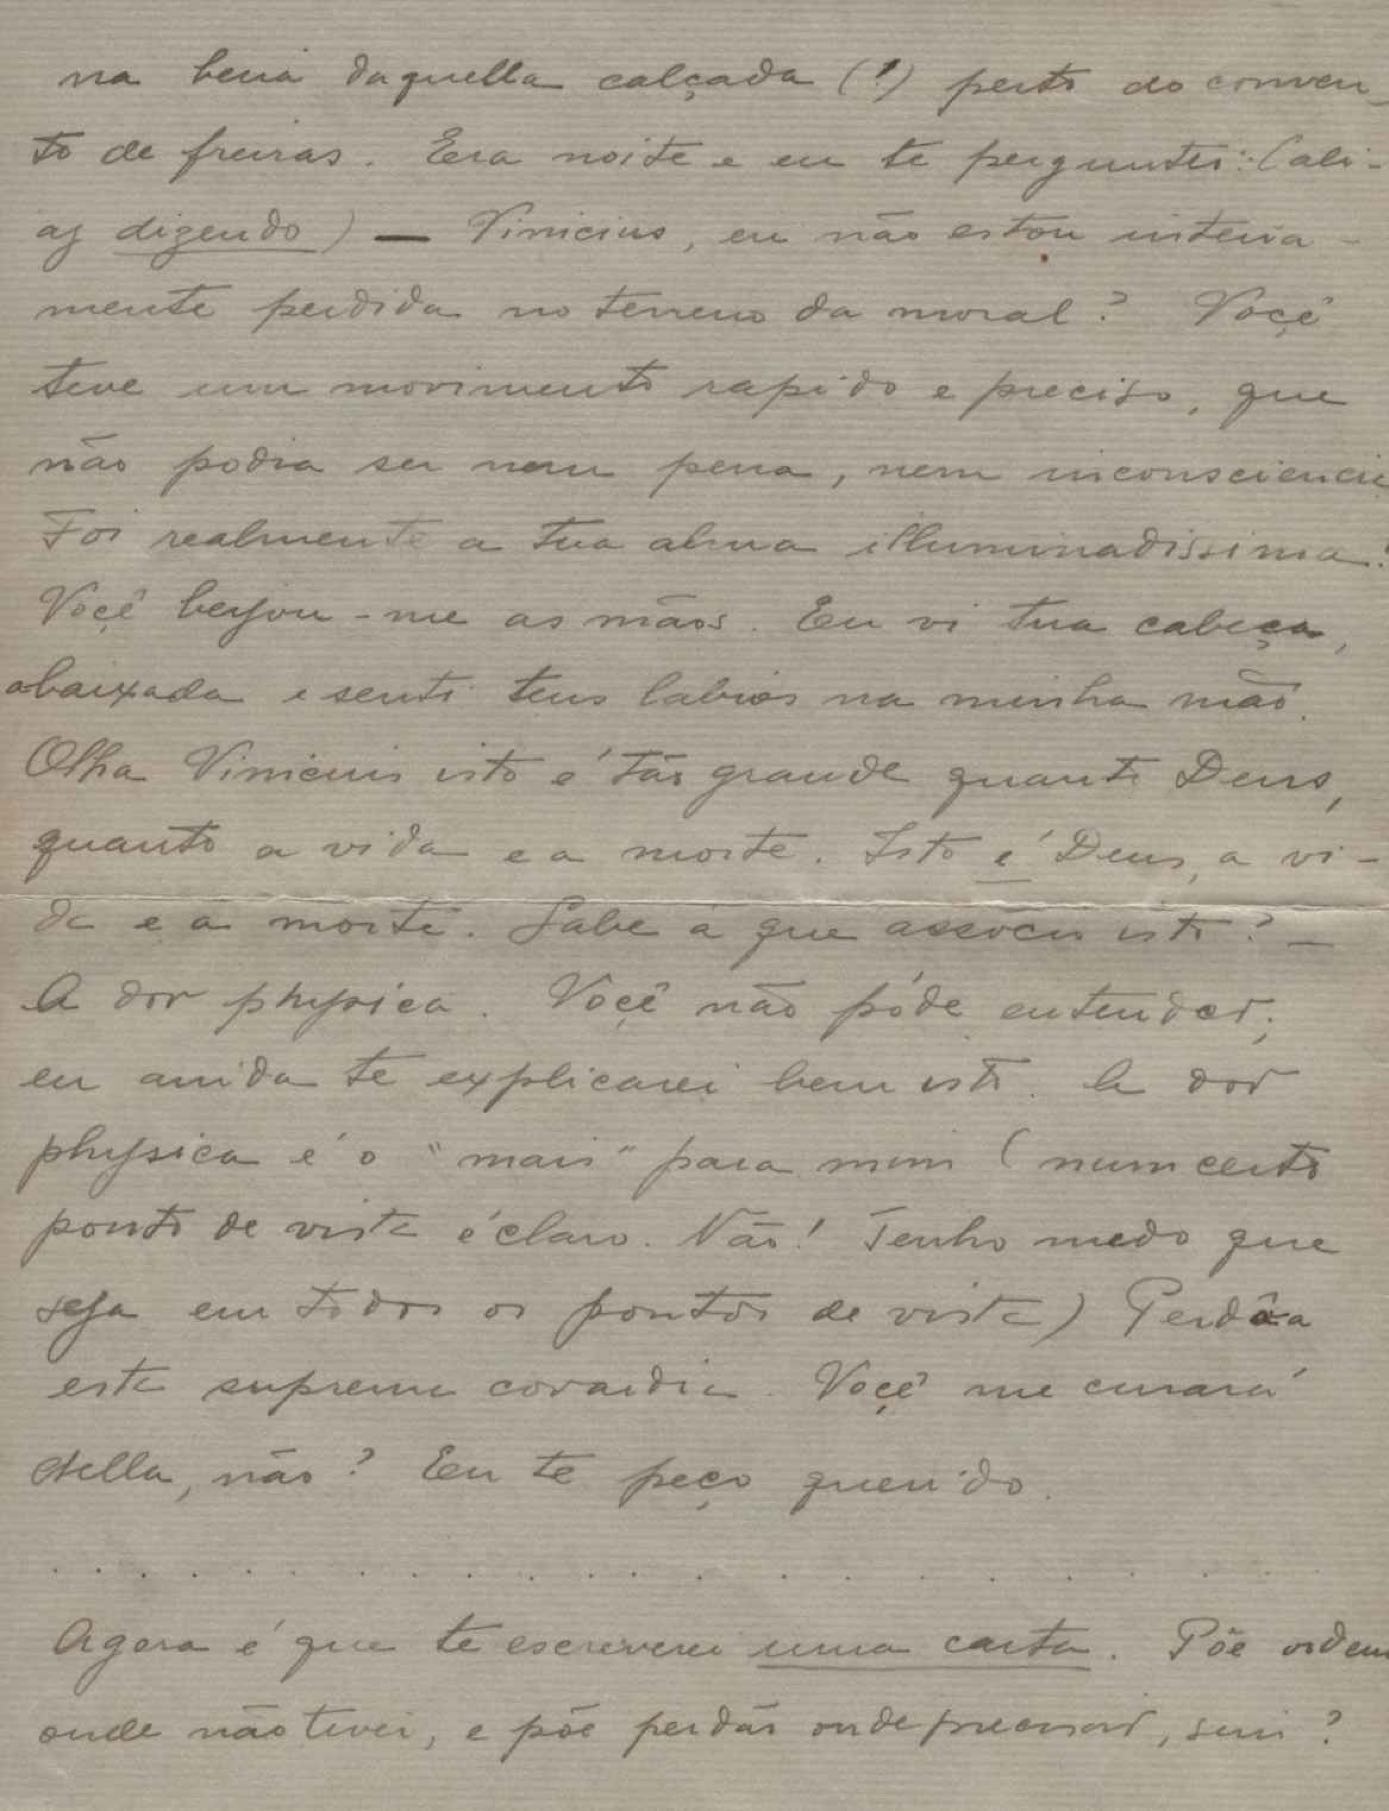 na beira daquella calçada (!) perto do conven-
to de freiras. Era noite e eu te perguntei: (ali-
az dizendo) — Vinicius, eu não estou inteira-
mente perdida no terreno da moral? Você
teve um movimento rapido e preciso, que
não podia ser nem pena, nem inconsciencia
Foi realmente a tua alma illuminadissima!
Você beijou-me as mãos. Eu vi tua cabeça,
abaixada e senti teus labios na minha mão.
Olha Vinicius isto é tão grande quanto Deus,
quanto a vida e a morte. Isto é Deus, a vi-
da e a morte. Sabe a que associo isto? —
A dor physica. Você não póde entender;
eu ainda te explicarei bem isto. A dor
physica é o "mais" para mim (num certo
ponto de vista é claro. Não! Tenho medo que
seja em todos os pontos de vista) Perdôa
esta suprema covardia. Você me curará
della, não? Eu te peço querido.
. . . . . . . . . . . . . . . . . .
Agora é que te escreverei uma carta. Põe ordem
onde não tiver, e põe perdão onde precisar, sim?